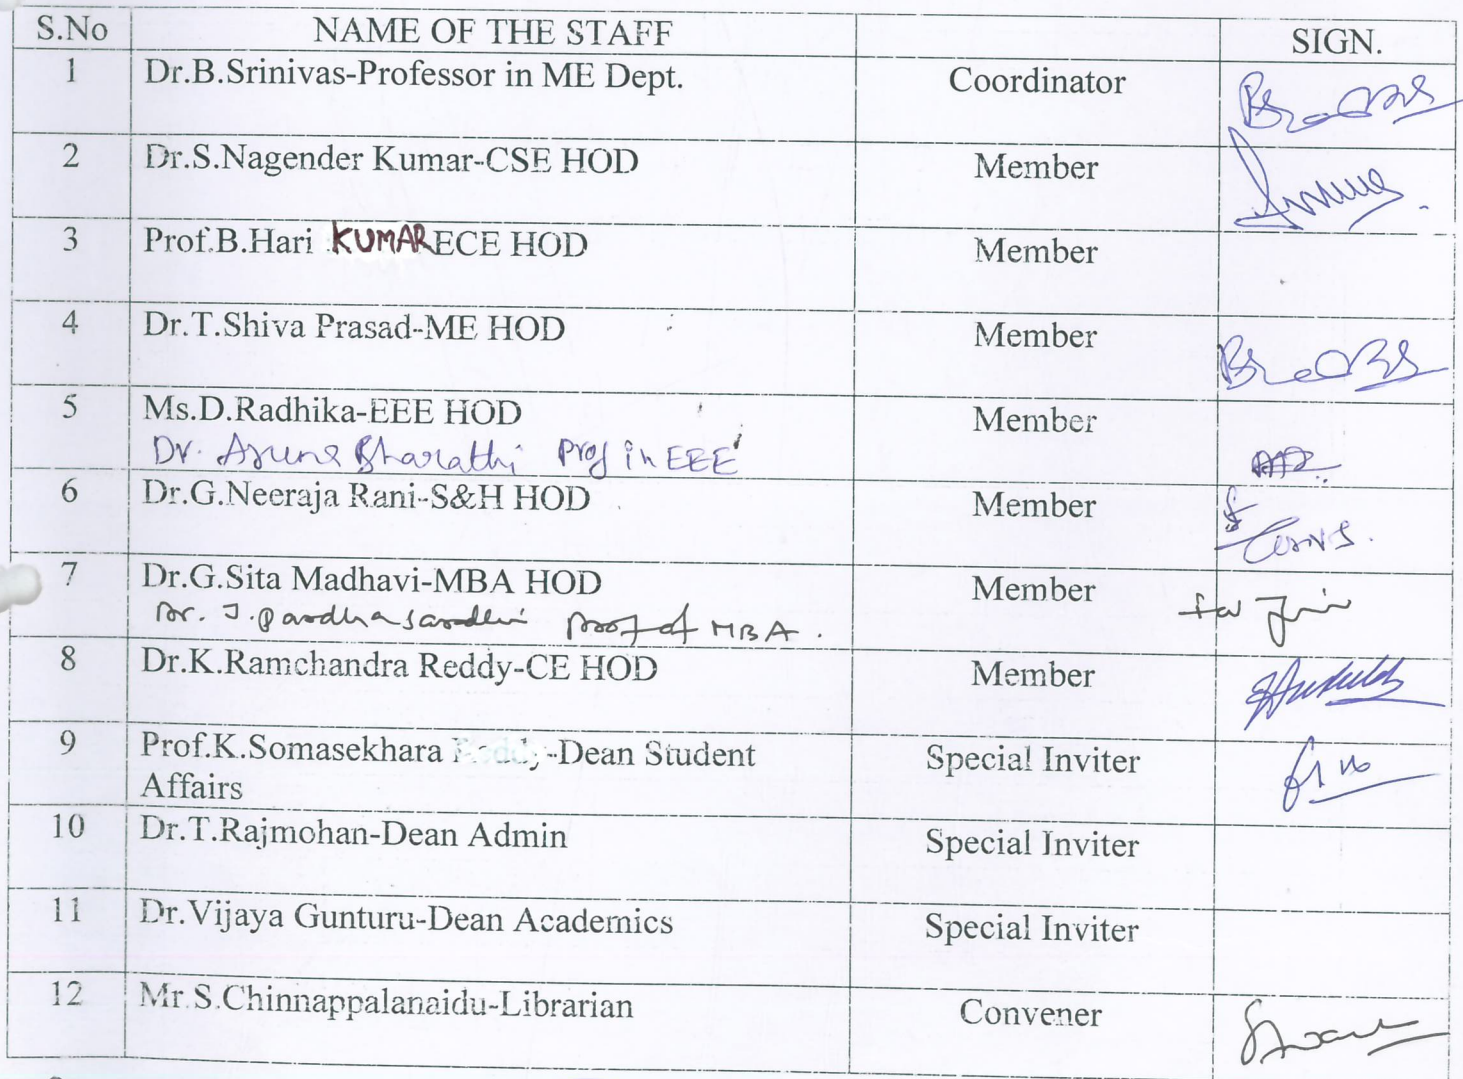 S.No NAME OF THE STAFF SIGN.
1 Dr.B.Srinivas-Professor in ME Dept. Coordinator
2 Dr.S.Nagender Kumar-CSE HOD Member
3 Prof.B.Hari KUMAR ECE HOD Member
4 Dr.T.Shiva Prasad-ME HOD Member
5 Ms.D.Radhika-EEE HOD Member
Dr. Aruna Bharathi Prof in EEE
6 Dr.G.Neeraja Rani-S&H HOD Member
7 Dr.G.Sita Madhavi-MBA HOD Member
Dr. J. Pardhasaradhi prof of MBA. for
8 Dr.K.Ramchandra Reddy-CE HOD Member
9 Prof.K.Somasekhara Reddy-Dean Student Special Inviter
Affairs
10 Dr.T.Rajmohan-Dean Admin Special Inviter
11 Dr.Vijaya Gunturu-Dean Academics Special Inviter
12 Mr.S.Chinnappalanaidu-Librarian Convener